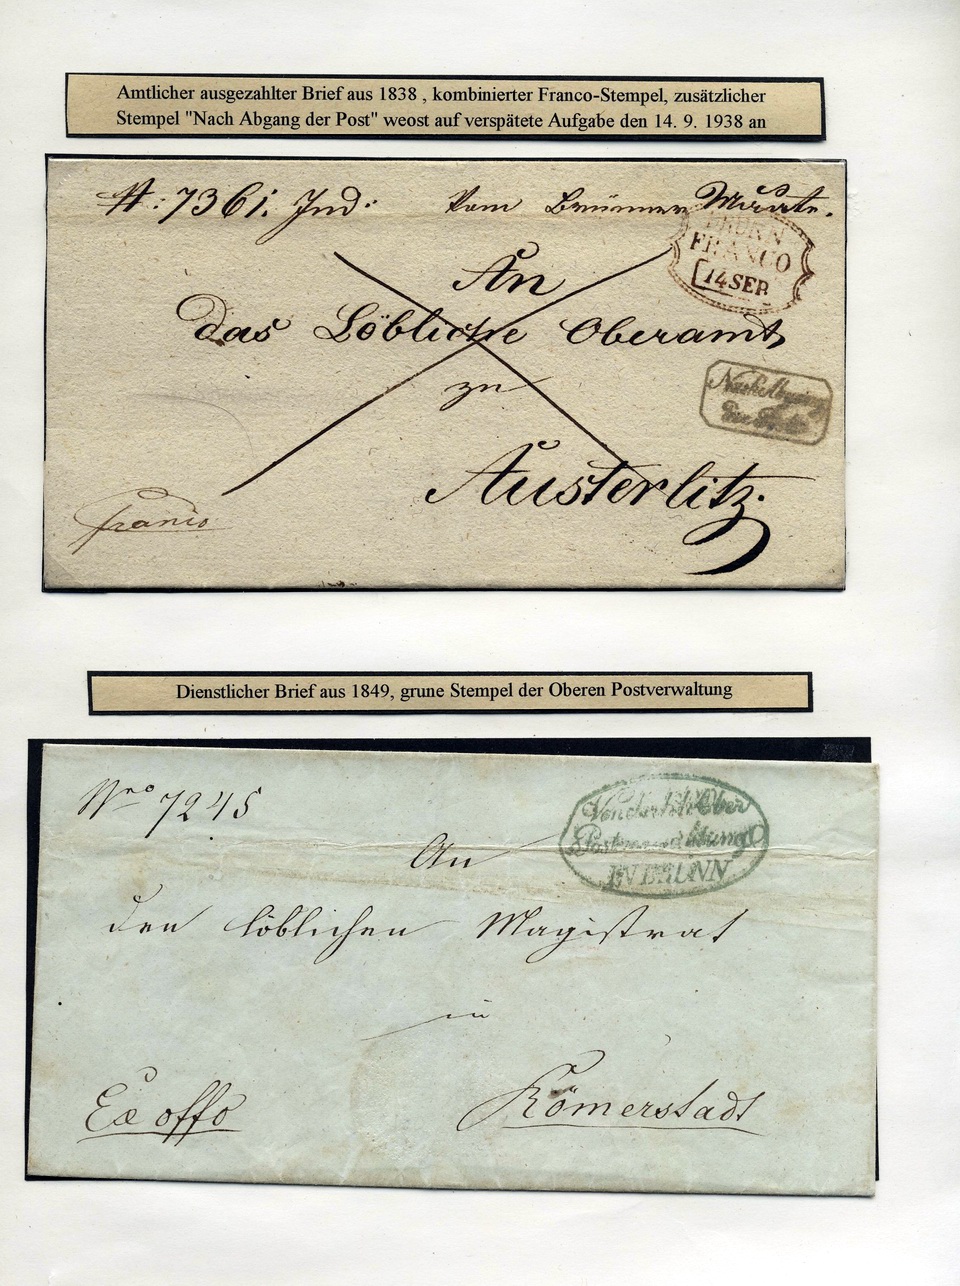 Amtlicher ausgezahlter Brief aus 1838 , kombinierter Franco-Stempel, zusätzlicher
Stempel "Nach Abgang der Post" weost auf verspätete Aufgabe den 14. 9. 1938 an
N: 7361. Ind: Vom Brünner
BRÜNN
FRANCO
14 SEP.
An
das Löbliche Oberamt
zu
Nach Abgang
der Post
Austerlitz.
franco
Dienstlicher Brief aus 1849, grune Stempel der Oberen Postverwaltung
Nro 7245
Von der k.k. Ober
Postverwaltung
IN BRUNN
An
den löblichen Magistrat
in
Ex offo
Römerstadt